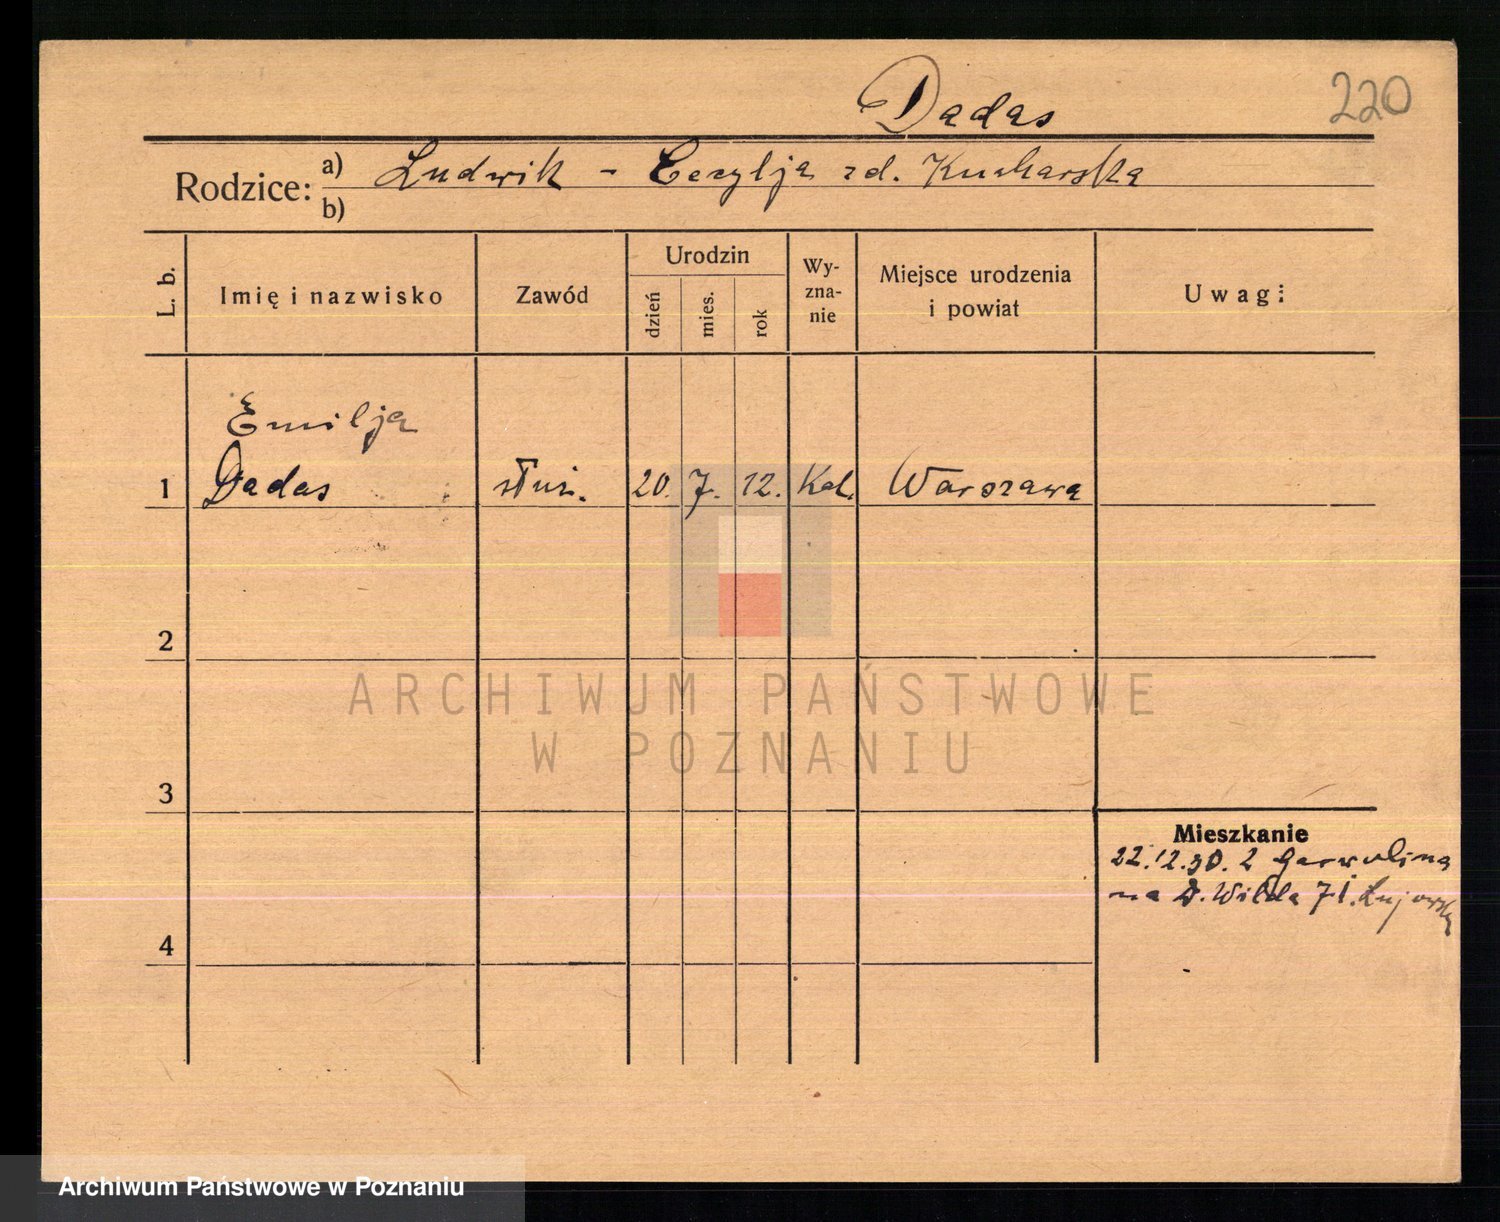 220
Dadas
Rodzice:
a) Ludwik - Cecylja zd. Kucharska
b)
L. b.
Imię i nazwisko
Zawód
Urodzin
dzień
mies.
rok
Wy-
zna-
nie
Miejsce urodzenia
i powiat
Uwagi
Emilja
1 Dadas służ. 20. 7. 12. Kat. Warszawa
2
3
4
Mieszkanie
22.12.30. z Garwolina
na D. Wilda 71.
ARCHIWUM PAŃSTWOWE
W POZNANIU
Archiwum Państwowe w Poznaniu